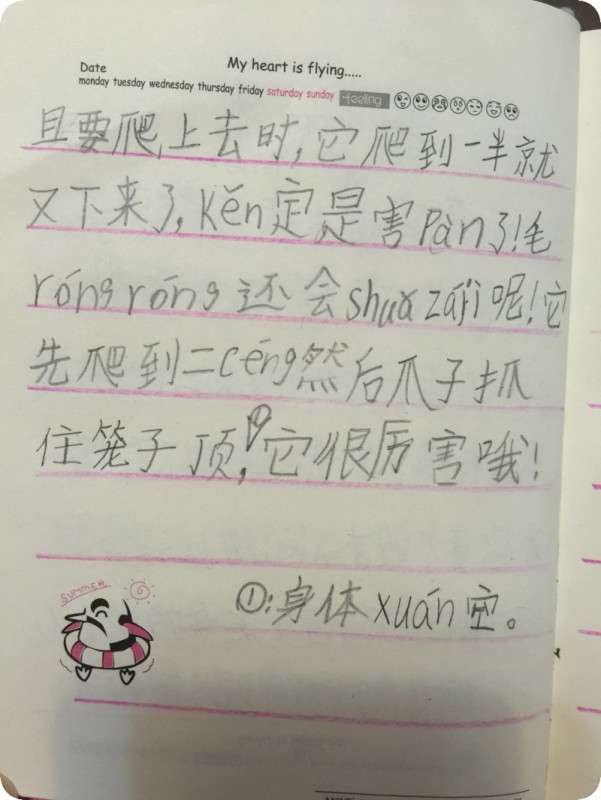 My heart is flying.....
Date
monday tuesday wednesday thursday friday saturday sunday feeling
且要爬上去时,它爬到一半就
又下来了,Kěn定是害Pàn了!毛
róng róng还会shuǎ zájì呢!它
先爬到二céng然后爪子抓
住笼子顶,①它很厉害哦!
summer
①:身体xuán空。